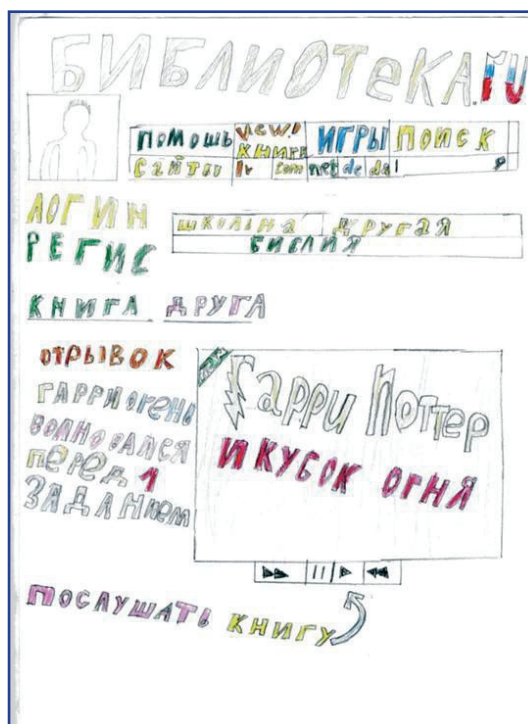 БИБЛИОТЕКА.RU
ПОМОШЬ NEW! КНИГИ ИГРЫ ПОИСК
САЙТЫ lv com net de da
ЛОГИН
РЕГИС
ШКОЛЬНА ДРУГАЯ
БИБЛИЯ
КНИГА ДРУГА
ОТРЫВОК
ГАРРИ ОЧЕНЬ
ВОЛНОВАЛСЯ
ПЕРЕД 1
ЗАДАНИЕМ
Гарри Поттер
И КУБОК ОГНЯ
ПОСЛУШАТЬ КНИГУ